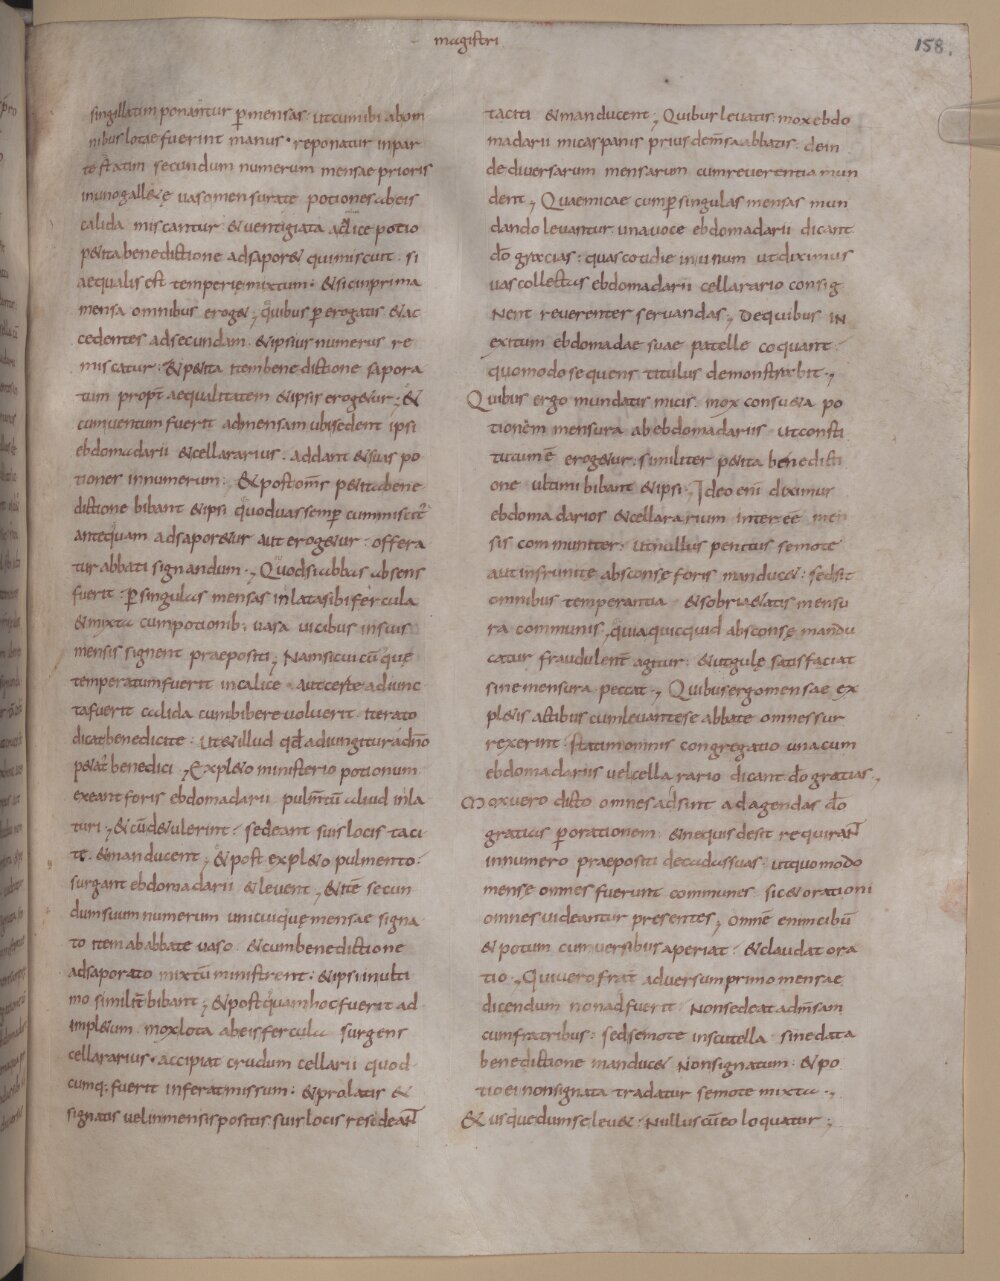 magistri
158.
singillatim ponantur p̄ mensas · ut cum ibi ab om
nibus lotae fuerint manus · reponatur in par
te statim secundum numerum mensae prioris
in uno gallete uaso mensurate potiones ab eis
calida miscantur · & uentigiata calice potio
p&ita benedictione ad sapor& qui miscuit · si
aequalis est temperie mixtum · & sic in prima
mensa omnibus erog&; quibus p̄ erogatis & ac
cedentes ad secundam · & ipsius numerus re
miscatur · & p&ita item benedictione sapora
tum propt̄ aequalitatem & ipsis erog&ur; &
cum uentum fuerit ad mensam ubi sedent ipsi
ebdomadarii & cellararius · addant & suas po
tiones in numerum · & post om̄s p&ita bene
dictione bibant & ipsi quod uas semp̄ cum miscit̄
antequam ad sapor&ur aut erog&ur · offera
tur abbati signandum ·; Quod si abbas absens
fuerit · p̄ singulas mensas inlata sibi fercula
& mixta cum potionib; uasa uicibus in suis
mensis signent praepositi; Nam si cui cū que
temperatum fuerit in calice aut certe adiunc
ta fuerit calida cum bibere uoluerit iterato
dicat benedicite · ut & illud qd̄ adiungitur a dn̄o
p&at̄ benedici; Expl&o ministerio potionum
exeant foris ebdomadarii pulm̄tū aliud inla
turi; & cū d&ulerint · sedeant suis locis taci
te · & manducent; & post expl&o pulmento ·
surgant ebdomadarii & leuent; & itē secun
dum suum numerum unicuique mensae signa
to item ab abbate uaso · & cum benedictione
ad saporato mixtū ministrent · & ipsi in ulti
mo similit̄ bibant; & post quam hoc fuerit ad
impl&um · mox lota ab eis fercula surgens
cellararius · accipiat crudum cellarii quod
cumq: fuerit inferat missum · & prolatis &
signatis uel in mensis positis · suis locis resedeant
taciti & manducent; Quibus leuatis · mox ebdo
madarii micas panis prius de m̄sa abbatis · dein
de diuersarum mensarum cum reuerentia mun
dent; Quae micae cum p̄ singulas mensas mun
dando leuantur una uoce ebdomadarii dicant
dō gracias : quas cotidie in unum ut diximus
uas collectas ebdomadarii cellarario consig
nent reuerenter seruandas; De quibus in
exitum ebdomadae suae patelle coquant ·
quomodo sequens titulus demonstrabit ·;
Quibus ergo mundatis micis · mox consu&a po
tionem mensura ab ebdomadariis ut consti
tutum ē erog&ur · similiter p&ita benedicti
one ultimi bibant & ipsi; Ideo eni diximus
ebdomadarios & cellararium interēē men
sis communiter · ut nullus penitus semote
aut infrunite absconse foris manduc& · sed sit
omnibus temperantia & sobri&atis mensu
ra communis, quia quicquid absconse mandu
catur fraudulent̄ agitur · & ut gule satisfaciat
sine mensura peccat; Quibus ergo mensae ex
pl&is actibus cum leuante se abbate omnes sur
rexerint · statim omnis congregatio una cum
ebdomadariis uel cellarario dicant dō gratias;
Mox uero dicto omnes adsint ad agendas dō
gratias p̄ orationem · & ne quis desit requirant
in numero praepositi decadas suas · ut quomodo
mense omnes fuerunt communes sic & orationi
omnes uideantur presentes; Omnē enim cibū
& potum cum uersibus aperiat · & claudat ora
tio; Qui uero frat̄ ad uersum primo mensae
dicendum non adfuerit · Non sedeat ad m̄sam
cum fratribus : sed semote in scutella · sine data
benedictione manduc& Non signatum · & po
tio ei non signata tradatur semote mixta ·;
& usque dum se leu& · Nullus cū eo loquatur;